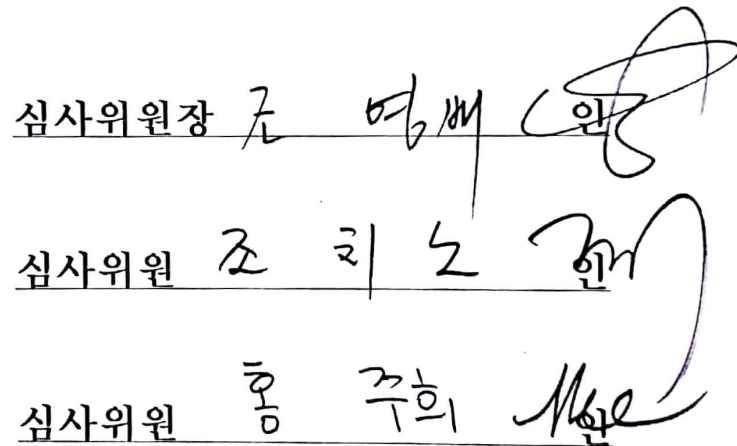 심사위원장 영배 인
심사위원 조 치 노 인
심사위원 홍 주희 인